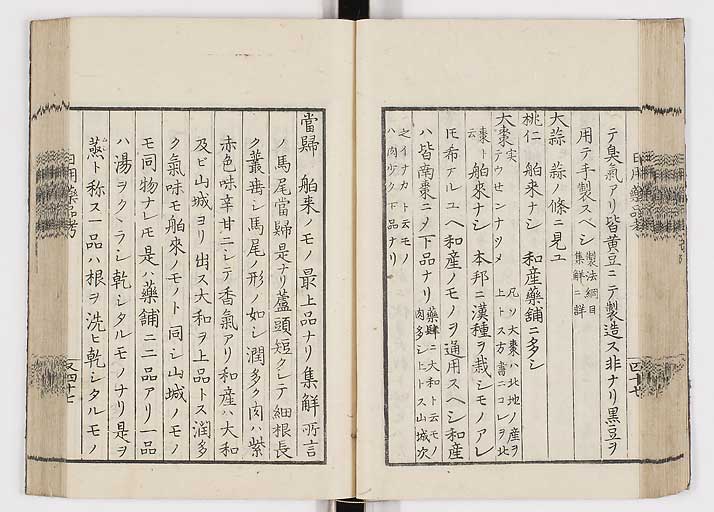 テ臭氣アリ皆黄豆ニテ製造ス非ナリ黒豆ヲ
用テ手製スヘシ 製法綱目集解ニ詳
大蒜 蒜ノ條ニ見ユ
桃仁 舶來ナシ 和産藥舖ニ多シ
大棗 實 テウせンナツメ 凡ソ大棗ハ北地ノ産ヲ上トス方書ニコレヲ北
棗ト云 舶來ナシ 本邦ニ漢種ヲ栽シモノアレ
𪜈希ナルユヘ和産ノモノヲ通用スヘシ和産
ハ皆南棗ニメ下品ナリ 藥肆ニ大和ト云モノ肉多シ上トス山城次
之イナカト云モノハ肉少ク下品ナリ
當歸 舶來ノモノ最上品ナリ集解所言
ノ馬尾當歸是ナリ蘆頭短クシテ細根長
ク叢垂シ馬尾ノ形ノ如シ潤多ク肉ハ紫
赤色味辛甘ニシテ香氣アリ和産ハ大和
及ビ山城ヨリ出ス大和ヲ上品トス潤多
ク氣味モ舶來ノモノト同シ山城ノモノ
モ同物ナレ𪜈是ハ藥舖ニ二品アリ一品
ハ湯ヲクヾラシ乾シタルモノナリ是ヲ
蒸ト称ス一品ハ根ヲ洗ヒ乾シタルモノ
日用藥品考
又四十七
日用藥品考
四十七